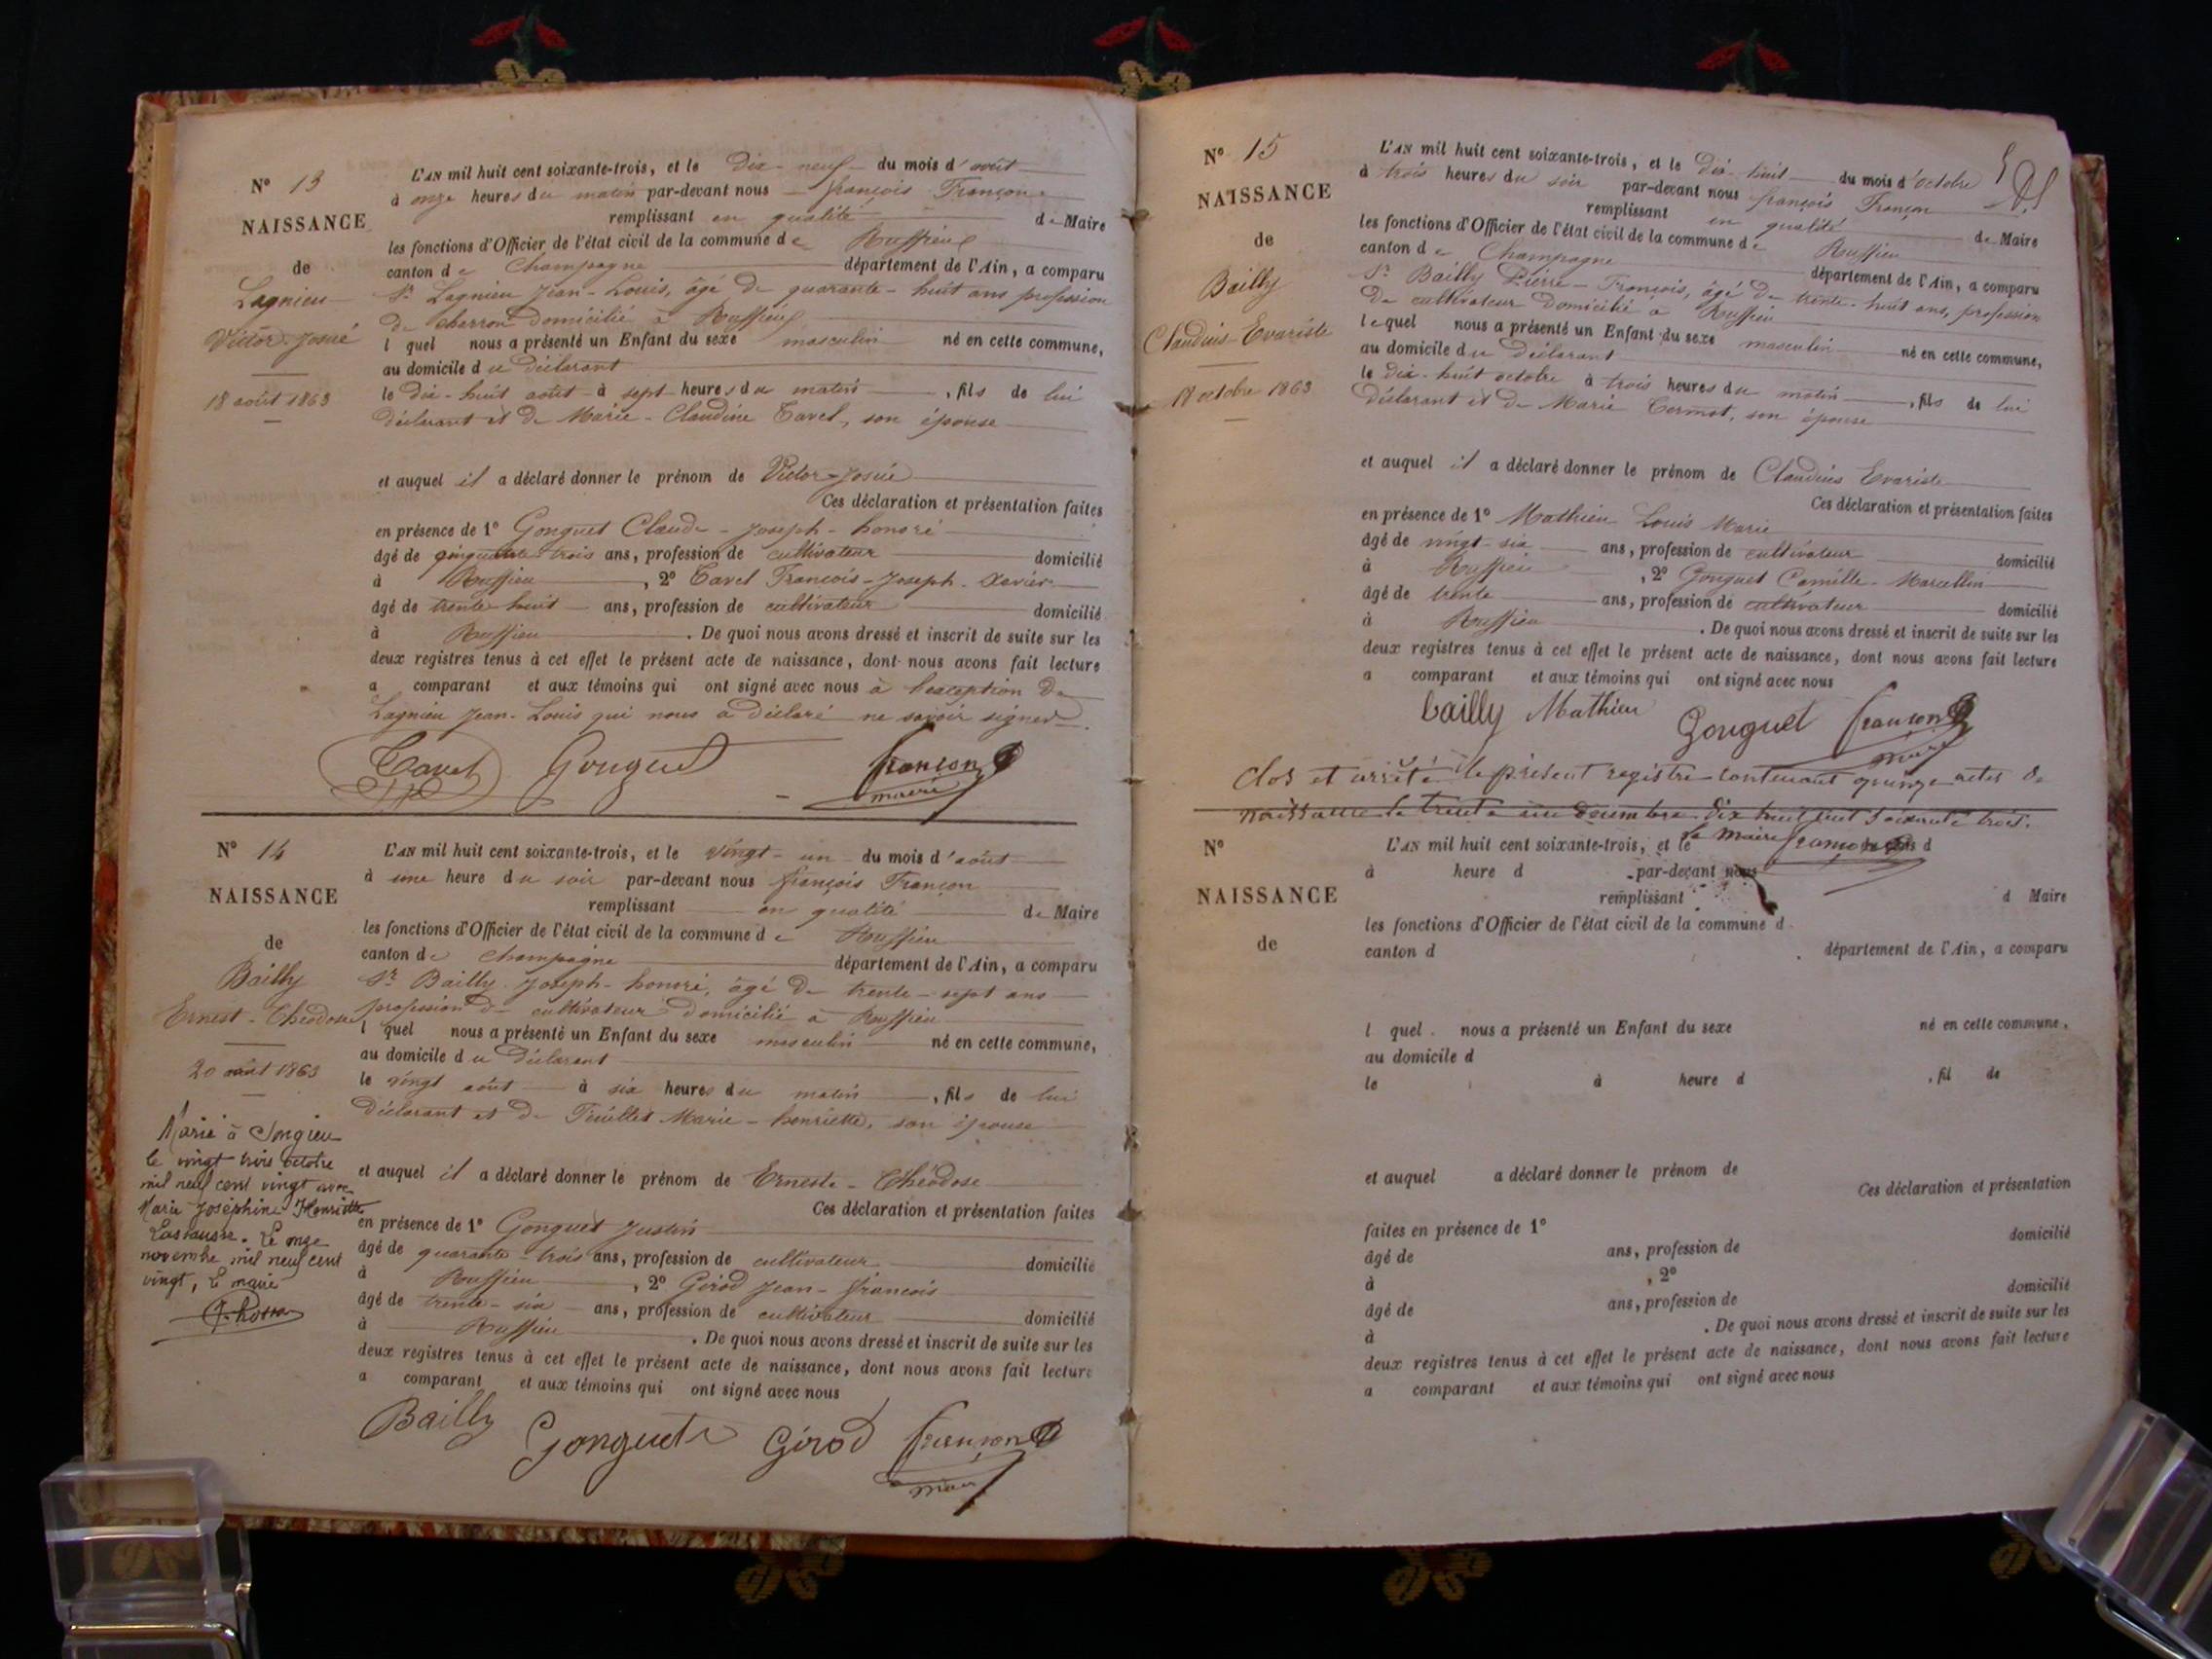 N° 13
NAISSANCE
de
Lagnieu
Victor-Josué
18 août 1863
L'AN mil huit cent soixante-trois, et le dix-neuf du mois d'août
à onze heures du matin par-devant nous françois Françon
remplissant en qualité de Maire
les fonctions d'Officier de l'état civil de la commune de Ruffieu
canton de Champagne département de l'Ain, a comparu
Sr Lagnieu Jean-Louis, âgé de quarante-huit ans profession
de charron domicilié à Ruffieu
l quel nous a présenté un Enfant du sexe masculin né en cette commune,
au domicile du déclarant
le dix-huit août à sept heures du matin, fils de lui
déclarant et de Marie-Claudine Tavel, son épouse
et auquel il a déclaré donner le prénom de Victor-Josué
Ces déclaration et présentation faites
en présence de 1° Gonguet Claude-Joseph-honoré
âgé de cinquante trois ans, profession de cultivateur domicilié
à Ruffieu, 2° Tavel François-Joseph-Xavier
âgé de trente-huit ans, profession de cultivateur domicilié
à Ruffieu. De quoi nous avons dressé et inscrit de suite sur les
deux registres tenus à cet effet le présent acte de naissance, dont nous avons fait lecture
a comparant et aux témoins qui ont signé avec nous à l'exception de
Lagnieu Jean-Louis qui nous a déclaré ne savoir signer.
Tavel Gonguet françon
maire
N° 14
NAISSANCE
de
Bailly
Ernest-Théodose
20 août 1863
Marié à Songieu
le vingt trois octobre
mil neuf cent vingt avec
Marie Joséphine Henriette
Le onze
novembre mil neuf cent
vingt, Le maire
L'AN mil huit cent soixante-trois, et le vingt-un du mois d'août
à une heure du soir par-devant nous françois Françon
remplissant en qualité de Maire
les fonctions d'Officier de l'état civil de la commune de Ruffieu
canton de Champagne département de l'Ain, a comparu
Sr Bailly Joseph-honoré, âgé de trente-sept ans
profession de cultivateur domicilié à Ruffieu
l quel nous a présenté un Enfant du sexe masculin né en cette commune,
au domicile du déclarant
le vingt août à six heures du matin, fils de lui
déclarant et de Feuillet Marie-henriette, son épouse
et auquel il a déclaré donner le prénom de Erneste-Théodose
Ces déclaration et présentation faites
en présence de 1° Gonguet Justin
âgé de quarante-trois ans, profession de cultivateur domicilié
à Ruffieu, 2° Girod Jean-françois
âgé de trente-six ans, profession de cultivateur domicilié
à Ruffieu. De quoi nous avons dressé et inscrit de suite sur les
deux registres tenus à cet effet le présent acte de naissance, dont nous avons fait lecture
a comparant et aux témoins qui ont signé avec nous
Bailly Gonguet Girod françon
maire
N° 15
NAISSANCE
de
Bailly
Claudius-Evariste
18 octobre 1863
L'AN mil huit cent soixante-trois, et le dix-huit du mois d'octobre
à trois heures du soir par-devant nous françois Françon
remplissant en qualité de Maire
les fonctions d'Officier de l'état civil de la commune de Ruffieu
canton de Champagne département de l'Ain, a comparu
Sr Bailly Pierre-François, âgé de trente-huit ans, profession
de cultivateur domicilié à Ruffieu
lequel nous a présenté un Enfant du sexe masculin né en cette commune,
au domicile du déclarant
le dix-huit octobre à trois heures du matin, fils de lui
déclarant et de Marie Cormot, son épouse
et auquel il a déclaré donner le prénom de Claudius Evariste
Ces déclaration et présentation faites
en présence de 1° Mathieu Louis Marie
âgé de vingt-six ans, profession de cultivateur domicilié
à Ruffieu, 2° Gonguet Camille-Marcellin
âgé de trente ans, profession de cultivateur domicilié
à Ruffieu. De quoi nous avons dressé et inscrit de suite sur les
deux registres tenus à cet effet le présent acte de naissance, dont nous avons fait lecture
a comparant et aux témoins qui ont signé avec nous
bailly Mathieu Gonguet françon
maire
Clos et arrêté le présent registre contenant quinze actes de
naissance le trente un decembre dix huit cent soixante trois.
le maire françon
N°
NAISSANCE
de
L'AN mil huit cent soixante-trois, et le du mois d
à heure d par-devant nous
remplissant d Maire
les fonctions d'Officier de l'état civil de la commune d
canton d département de l'Ain, a comparu
l quel nous a présenté un Enfant du sexe né en cette commune,
au domicile d
le à heure d, fil de
et auquel a déclaré donner le prénom de
Ces déclaration et présentation
faites en présence de 1°
âgé de ans, profession de domicilié
à, 2°
âgé de ans, profession de domicilié
à. De quoi nous avons dressé et inscrit de suite sur les
deux registres tenus à cet effet le présent acte de naissance, dont nous avons fait lecture
a comparant et aux témoins qui ont signé avec nous